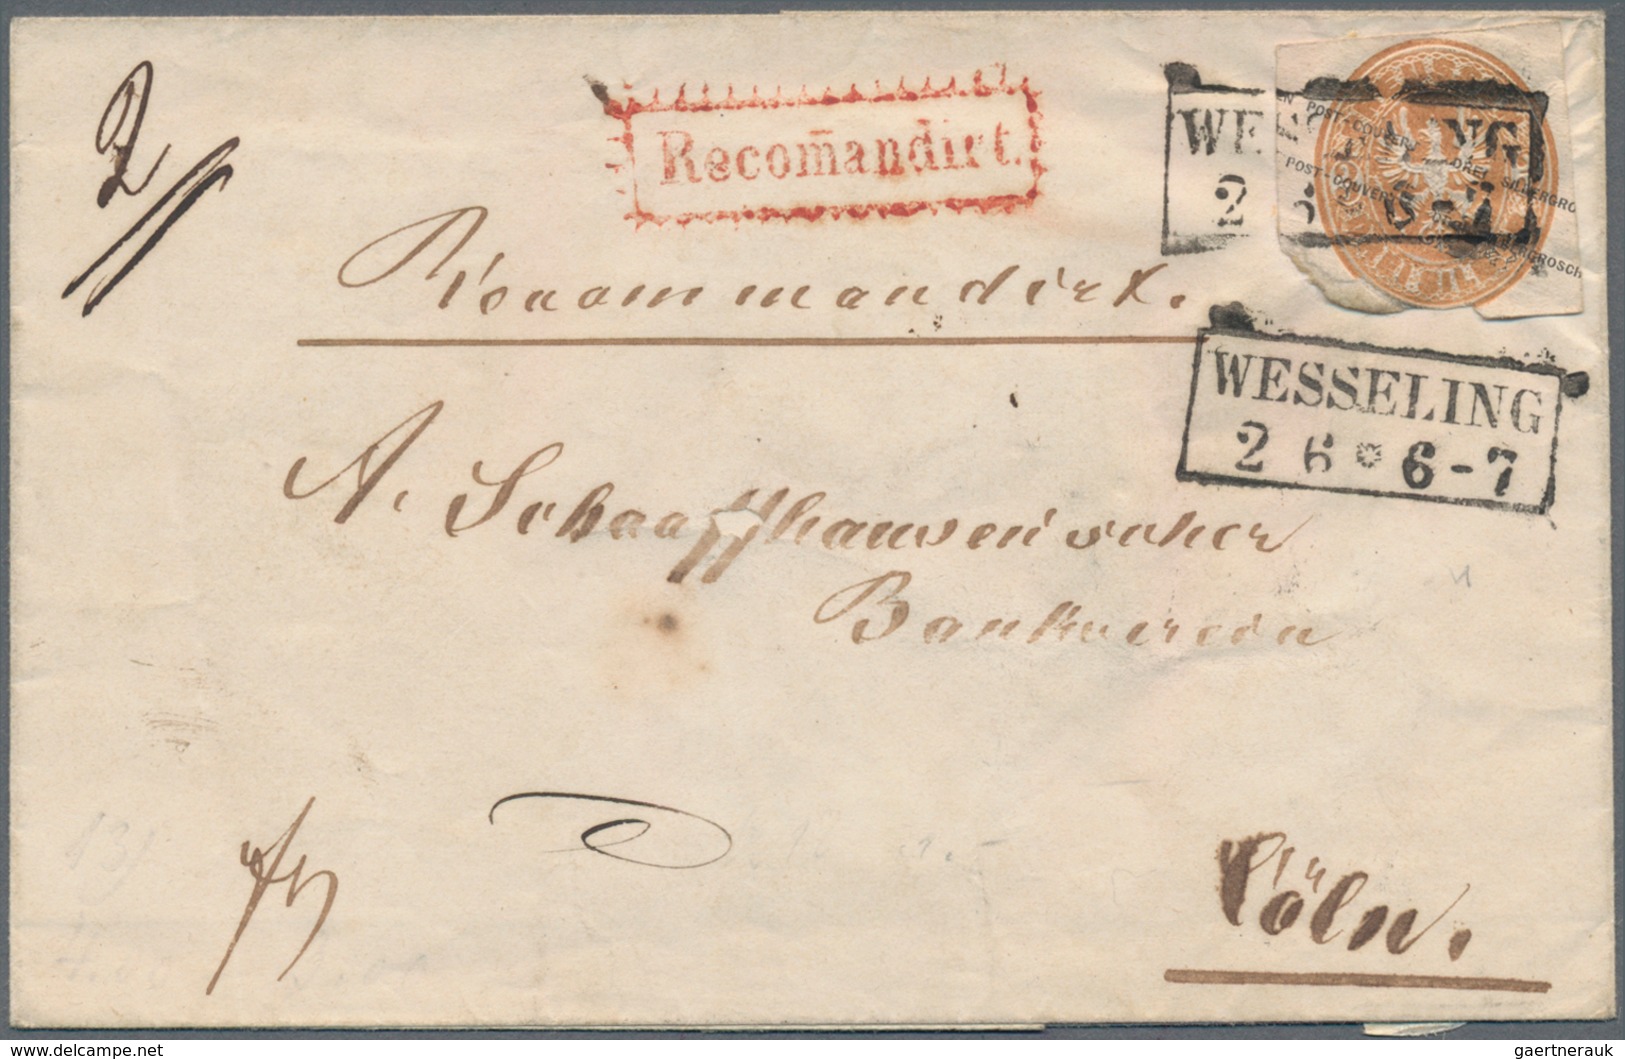 Recom̄andirt.
WE NG
2
EN POST-COUVERT DREI SILBERGRO
POST-COUVERT GROSCH
Recommandirt.
WESSELING
2 6 * 6-7
A. Schaaffhausen'scher
Bankverein
Cöln.
www.delcampe.net
gaertnerauk